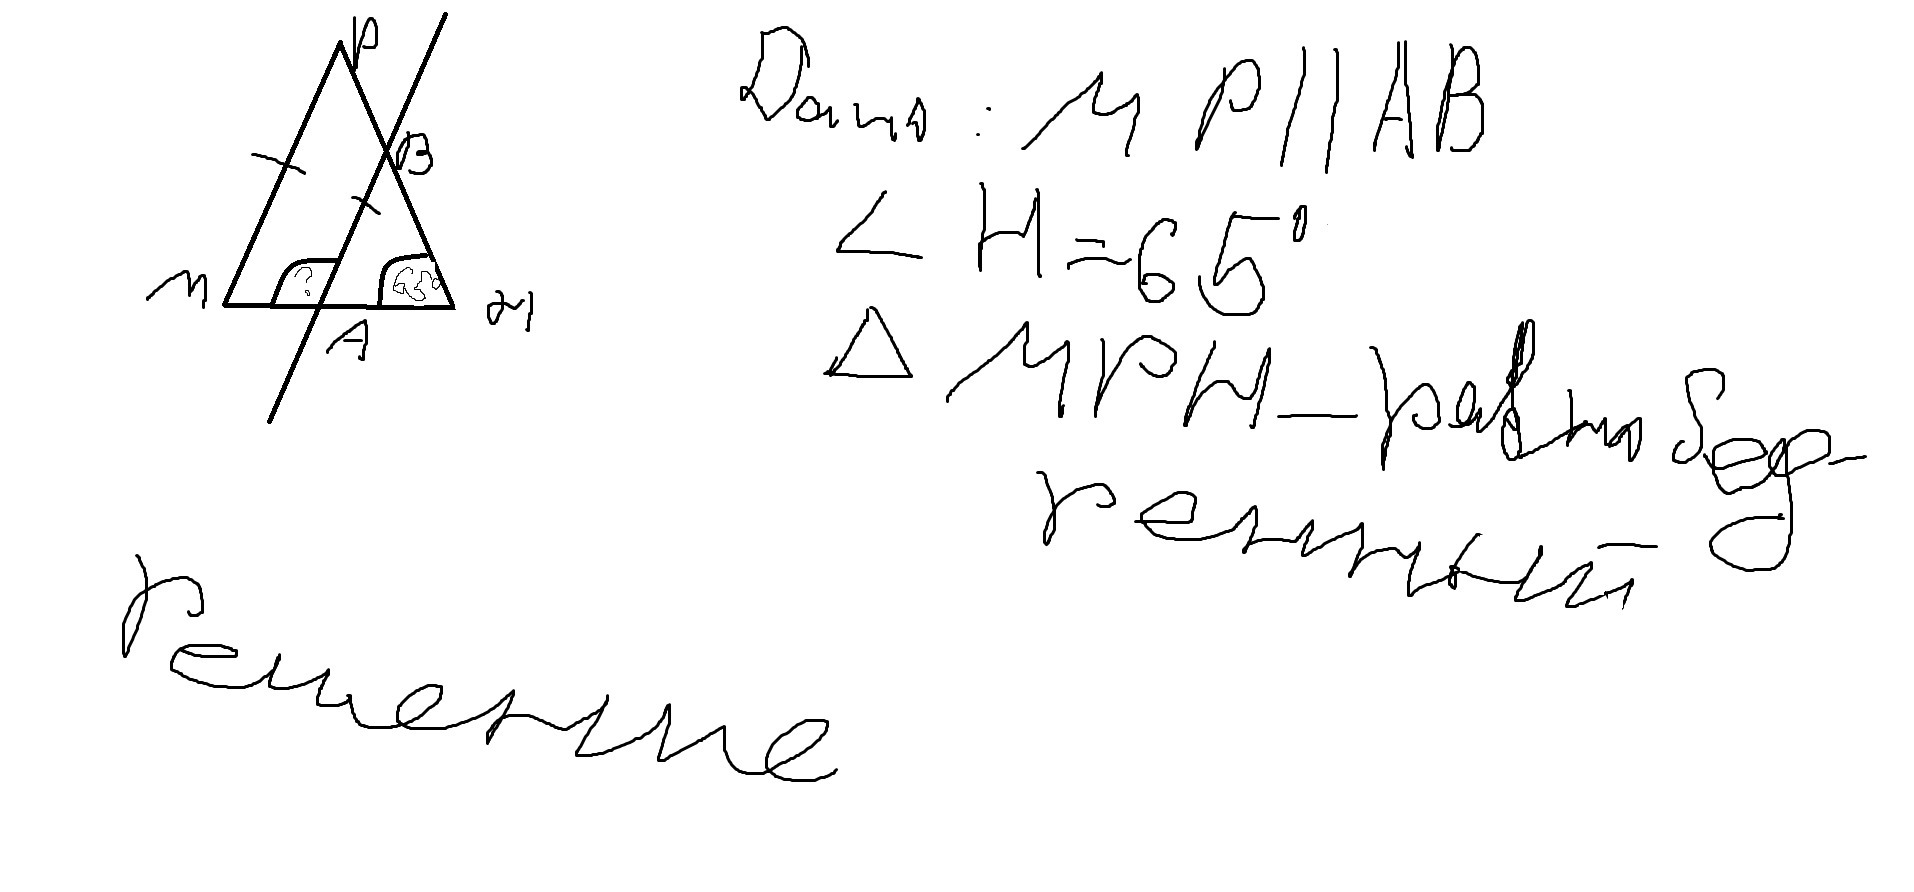 P
B
M ? 65° H
A
Дано: MP||AB
∠H=65°
△MPH – равнобед-
ренный
Решение